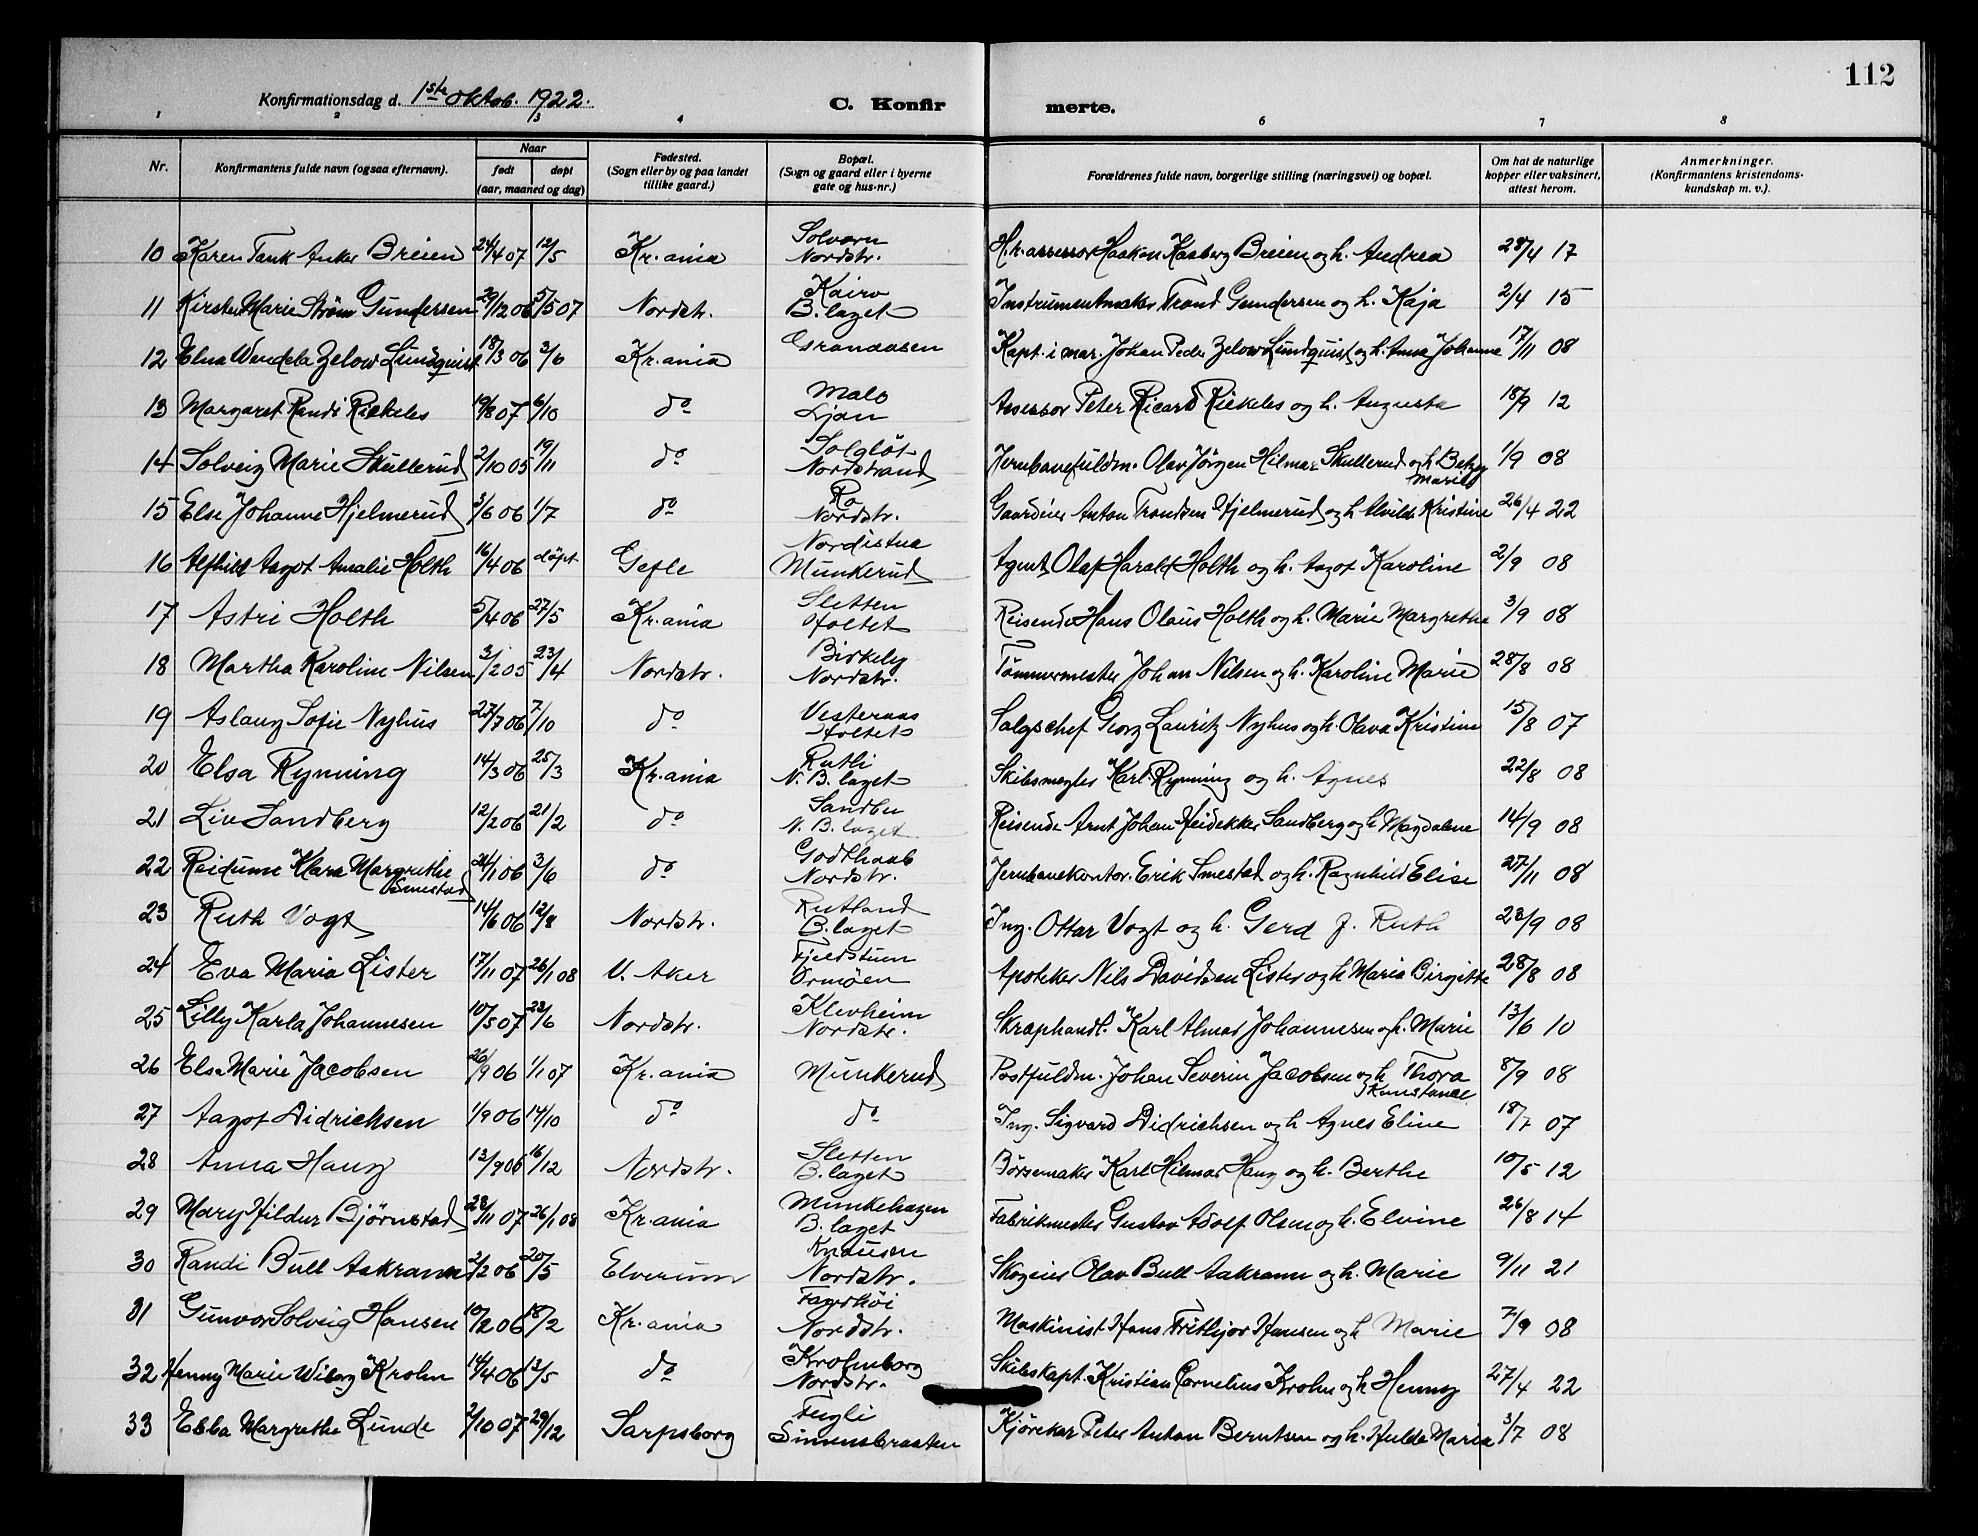 112
Konfirmationsdag d. 1ste oktob. 1922.
C. Konfirmerte.
1 2 3 4 6 7 8
Nr. Konfirmantens fulde navn (ogsaa efternavn). Naar født døpt (aar, maaned og dag) Fødested. (Sogn eller by og paa landet tillike gaard.) Bopæl. (Sogn og gaard eller i byerne gate og hus-nr.) Forældrenes fulde navn, borgerlige stilling (næringsvei) og bopæl. Om hat de naturlige kopper eller vaksinert, attest herom. Anmerkninger. (Konfirmantens kristendoms-kundskap m. v.).
10 Karen Tank Anker Breien 24/4 07 12/5 Kr.ania Solvorn Nordstr. H.r. assessor Haakon Hasberg Breien og h. Andrea 28/4 17
11 Kirsten Marie Strøm Gundersen 29/12 06 5/5 07 Nordstr. Kairo B.laget Instrumentmaker Trond Gundersen og h. Kaja 2/4 15
12 Elna Wendela Zelow Lundquist 18/3 06 3/6 Kr.ania Granaasen Kapt. i mar. Johan Peder Zelow Lundquist og h. Anna Johanne 17/11 08
13 Margaret Randi Rickeles 19/8 07 6/10 do Malo Ljan Assessor Peter Ricard Rickeles og h. Augusta 18/9 12
14 Solveig Marie Skullerud 2/10 05 19/11 do Solgløt Nordstrand Jernbanefuldm. Olav Jørgen Hilmar Skullerud og h Betzy Marie 1/9 08
15 Else Johanne Hjelmerud 3/6 06 1/7 do Ro Nordstr. Gaardeier Anton Trondsen Hjelmerud og h Alvilde Kristine 26/4 22
16 Alfhild Aagot Amalie Holth 16/4 06 døpt Gefle Nordistua Munkerud Agent Olaf Harald Holth og h. Aagot Karoline 2/9 08
17 Astri Holth 5/4 06 27/5 Kr.ania Sletten Holtet Reisende Hans Olaus Holth og h. Marie Margrethe 3/9 08
18 Martha Karoline Nilsen 3/2 05 23/4 Nordstr. Birkely Nordstr. Tømmermester Johan Nilsen og h. Karoline Marie 28/8 08
19 Aslaug Sofie Nyhus 27/7 06 7/10 do Vesteraas Holtet Salgschef Georg Lauritz Nyhus og h. Olava Kristine 15/8 07
20 Elsa Rynning 14/3 06 25/3 Kr.ania Rutli N. B. laget Skibsmegler Karl Rynning og h. Agnes 22/8 08
21 Liv Sandberg 12/2 06 21/2 do Sandbu N. B. laget Reisende Arnt Johan Heidekker Sandberg og h Magdalene 14/9 08
22 Reidunn Klara Margrethe Smestad 24/1 06 3/6 do Godthaab Nordstr. Jernbanekontor. Erik Smestad og h. Ragnhild Elise 27/11 08
23 Ruth Vogt 14/6 06 12/8 Nordstr. Rutland B.laget Ing. Ottar Vogt og h. Gerd f. Ruth 23/9 08
24 Eva Maria Lister 17/11 07 26/1 08 V. Aker Fjeldstuen Ormøen Apoteker Nils Davidsen Lister og h Maria Birgitte 28/8 08
25 Lilly Karla Johannesen 10/5 07 23/6 Nordstr. Klevheim Nordstr. Skraphandl. Karl Almar Johannesen og h. Marie 13/6 10
26 Else Marie Jacobsen 26/9 06 1/1 07 Kr.ania Munkerud Postfuldm. Johan Severin Jacobsen og h Thora Konstance 8/9 08
27 Aagot Didrichsen 1/9 06 14/10 do do Ing. Sigvard Didrichsen og h Agnes Eline 18/7 07
28 Anna Haug 13/9 06 16/12 Nordstr. Sletten B.laget Børsemaker Karl Hilmar Haug og h. Berthe 10/5 12
29 Mary Hildur Bjørnstad 28/11 07 26/1 08 Kr.ania Munkehagen B. laget Fabrikmester Gustav Adolf Olsen og h. Elvine 26/8 14
30 Randi Bull Aakrann 2/2 06 20/5 Elverum Knausen Nordstr. Skogeier Olav Bull Aakrann og h. Marie 9/11 21
31 Gunvor Solveig Hansen 10/2 06 18/2 Kr.ania Fagerhøi Nordstr. Maskinist Hans Fritbjor Hansen og h Marie 7/9 08
32 Henny Marie Wiborg Krohn 14/4 06 13/5 do Krohnborg Nordstr. Skibskapt. Kristian Cornelius Krohn og h Henny 27/4 22
33 Ebba Margrethe Lunde 2/10 07 29/12 Sarpsborg Fugli Simensbraaten Kjørekar Peter Anton Berntsen og h. Hulda Maria 3/7 08